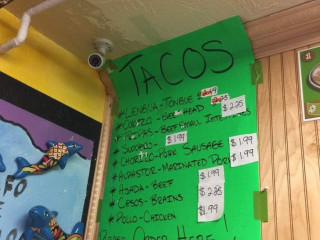 TACOS
*LENGUA-TONGUE
*CABEZO-BEEF HEAD $2.25
*TRIPAS-BEEF SMALL INTESTINES
SUADERO- $1.99
*CHORIZO-PORK SAUSAGE $1.99
*ALPASTOR-MARINATED PORK $1.99
*ASADA-BEEF $1.99
*CESOS-BRAINS $2.25
*POLLO-CHICKEN $1.99
ORDER HERE!